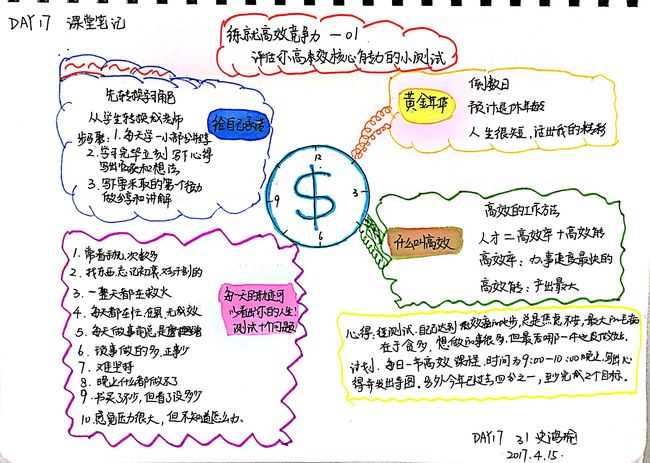 DAY17 课堂笔记
练就高效竞争力 —01
评估你高效核心能力的小测试
先转换学习角色
从学生转换成老师
步骤：1.每天学一小部分
2.学习完毕立刻写下心得
写出收获和想法
3.写下要采取的第一个行动
做分享和讲解
给自己承诺
黄金年华
倒数日
预计退休年龄
人生很短，活出我的精彩
12
3
6
9
$
什么叫高效
高效的工作方法
人才=高效率+高效能
高效率：办事速度最快的
高效能：产出最大
1.常看手机，次数多
2.找东西忘记初衷，对计划的
3.一整天都在救火
4.每天都在忙，但无成效
5.每天做事情总是
6.琐事做的多，正事少
7.难坚持
8.晚上什么都做不了
9.书买了不少，但看了没多少
10.感觉压力很大，但不知道怎么办。
每一天的状态可
以看出你的人生！
测试十个问题
心得：经测试，自己达到 总是焦虑不安，最大的毛病
在于贪多，想做的事很多，但最后哪一个
计划：每日一节高效课程，时间为9:00-10:00晚上，写出心
得并发出导图。另外今年已过去四分之一，到少完成2个目标。
DAY17 31 史鸿
2017.4.15.